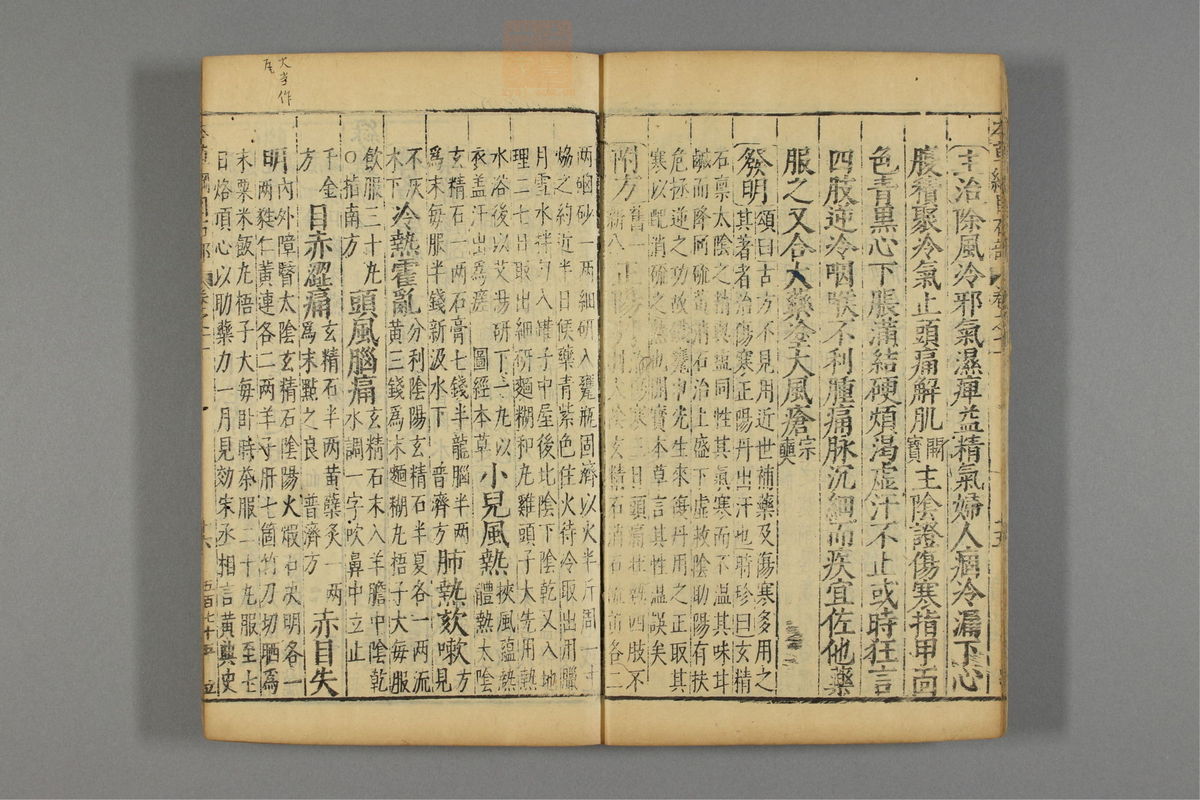 主治除風冷邪氣濕痺益精氣婦人痼冷漏下心
腹積聚冷氣止頭痛解肌開寶主陰證傷寒指甲面
色青黑心下脹滿結硬煩渴虛汗不止或時狂言
四肢逆冷咽喉不利腫痛脉沉細而疾宜佐他藥
服之又合大藥塗大風瘡宗奭
發明頌曰古方不見用近世補藥及傷寒多用之
其著者治傷寒正陽丹出汗也時珍曰玄精
石稟太陰之精與鹽同性其氣寒而不溫其味甘
鹹而降同硫黃消石治上盛下虛救陰助陽有扶
危拯逆之功故鐵甕申先生來復丹用之正取其
寒以配消硫之熱也開寶本草言其性溫誤矣
附方舊一新八 正陽丹 傷寒三日頭痛壯熱四肢不
利太陰玄精石消石硫黃各二
兩硇砂一兩細研入甆瓶固濟以火半斤周一寸
煿之約近半日候藥青紫色住火待冷取出用臘
月雪水拌勻入罐子中屋後北陰下陰乾又入地
埋二七日取出細研麵糊和丸雞頭子大先用熱
水浴後以艾湯研下一丸以
衣盖汗出爲瘥 圖經本草 小兒風熱 挾風蘊熱
體熱太陰
玄精石一兩石膏七錢半龍腦半兩
爲末每服半錢新汲水下 普濟方 肺熱欬嗽 方見
不灰木下 冷熱霍亂 分利陰陽玄精石半夏各一兩硫
黃三錢爲末麵糊丸梧子大每服
米飲服三十丸
○指南方 頭風腦痛 玄精石末入羊膽中陰乾
水調一字吹鼻中立止
千金方 目赤澀痛 玄精石半兩黃蘗炙一兩
爲末點之良 普濟方 赤目失
明 內外障翳太陰玄精石陰陽火煅石决明各一
兩蕤仁黃連各二兩羊子肝七箇竹刀切晒爲
末粟米飯丸梧子大每卧時茶服二十丸服至七
日烙頂心以助藥力一月見効宋丞相言黃典史
五百七十五